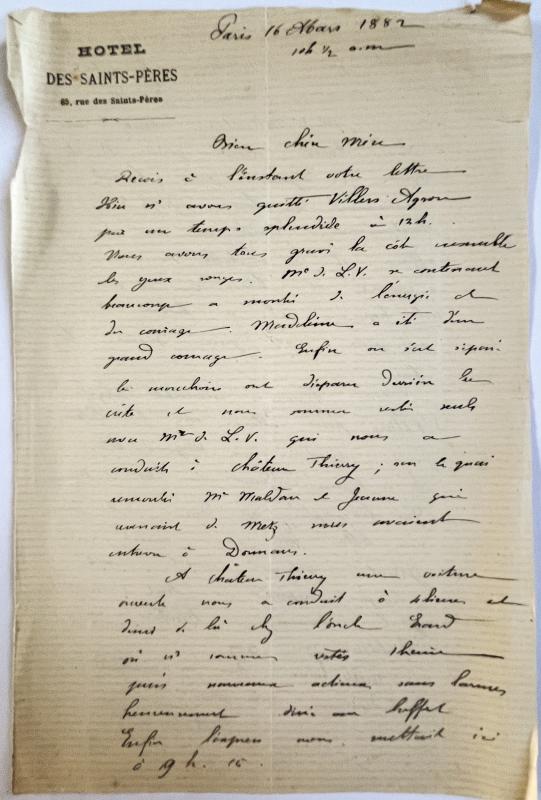 HOTEL
DES SAINTS-PÈRES
65, rue des Saints-Pères
Paris 16 Mars 1882
10h ½ a.m
Bien chère Mère
Reçois à l'instant votre lettre
Hier ns avons quitté Villers Agron
par un temps splendide à 12h.
Nous avons tous gravi la côte ensemble
les yeux rouges. Mr d. L.V. se contenant
beaucoup a montré de l'énergie et
du courage. Madeleine a été d'un
grand courage. Enfin on s'est séparé
les mouchoirs ont disparu derrière la
crête et nous sommes restés seuls
avec Mr d. L.V. qui nous a
conduits à château Thierry ; sur le quai
rencontré Mr Maldan et Jeanne qui
venant de Metz nous avaient
à Dormans.
A château Thierry une voiture
ouverte nous a conduit à 4 lieues et
demi de là chez l'oncle
où ns sommes restés 1 heure
puis nouveaux adieux sans larmes
heureusement diné au buffet
Enfin l'express nous mettait ici
à 9 h. 15.